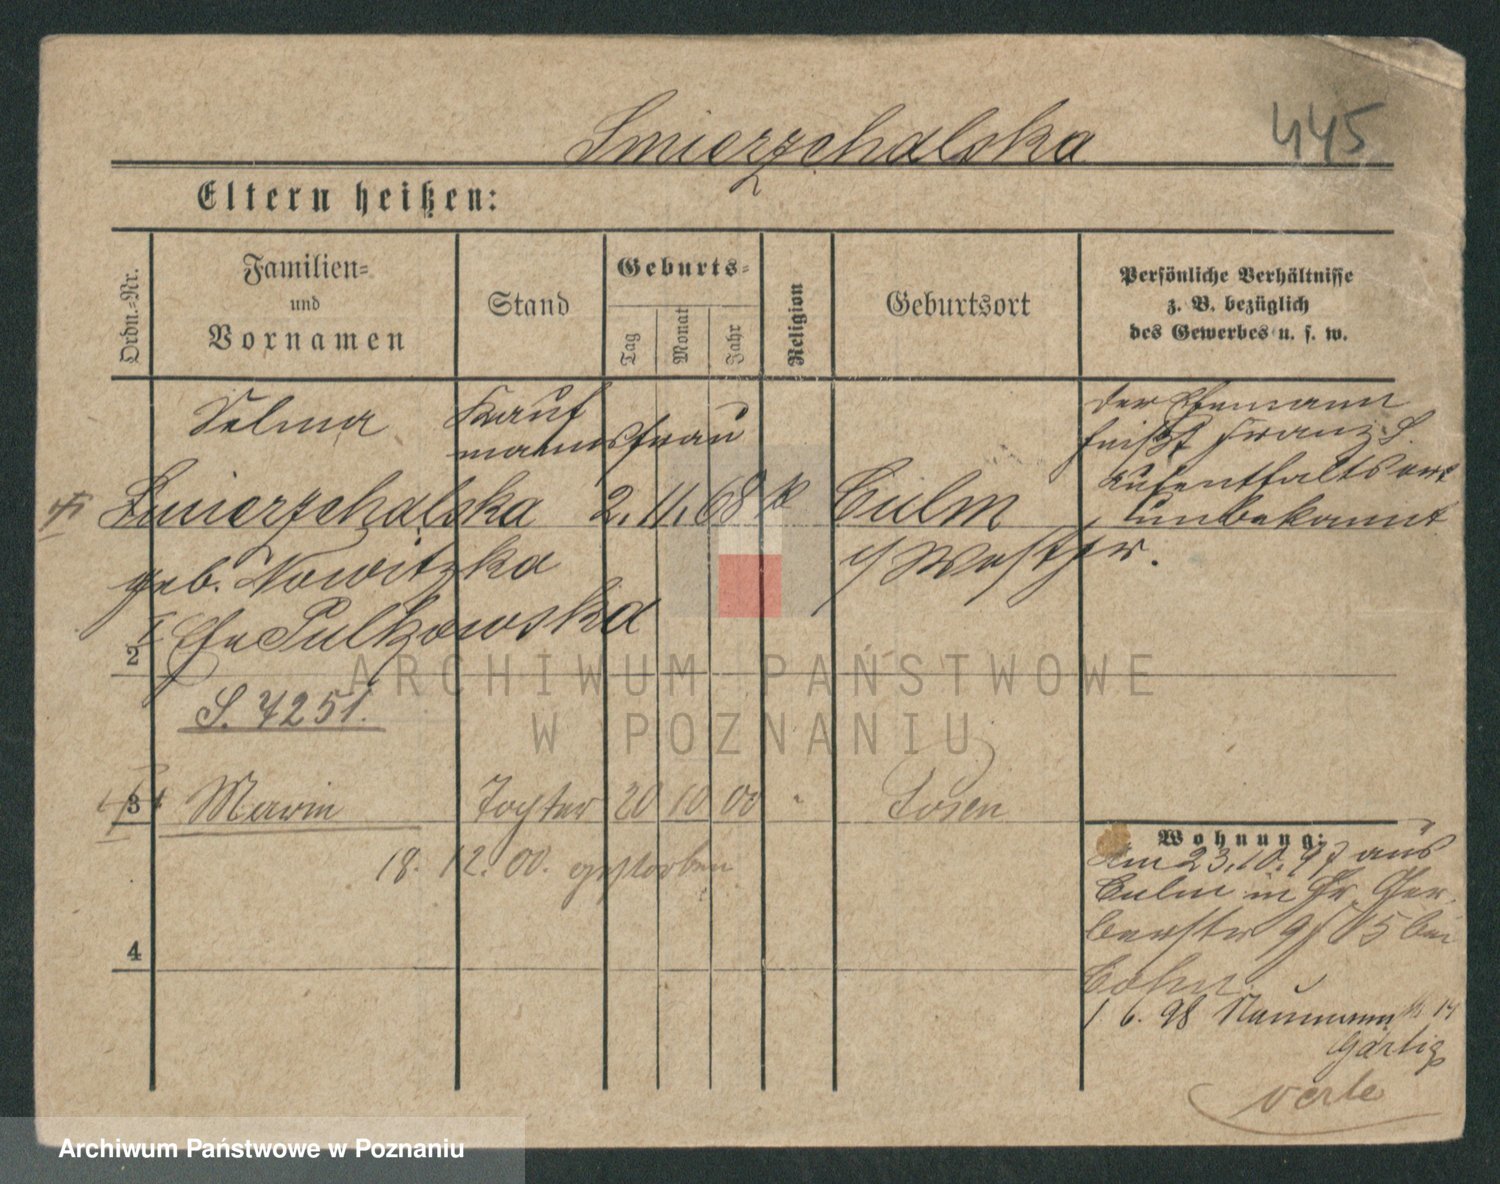 Smierzchalska
445
Eltern heißen:
Ordn.=Nr.
Familien=
und
Vornamen
Stand
Geburts=
Tag
Monat
Jahr
Religion
Geburtsort
Persönliche Verhältnisse
z. B. bezüglich
des Gewerbes u. s. w.
Selma
Kauf
mannsfrau
der Ehemann
heißt Franz S.
Aufenthaltsort
unbekannt
Smierzchalska 2. 11. 68 k Culm
geb. Nowitzka
i/ Westpr.
I Ehe Pulkowska
2
S. 7251.
3 Marie Tochter 20 10 00 " Posen
18. 12. 00. gestorben
4
Wohnung:
Am 23. 10. 97 aus
Culm in Gr. Ger
berstr 9/ 5 bei
Cohn.
1. 6. 98 Naumann 14
Gärtig
verte
ARCHIWUM PAŃSTWOWE
W POZNANIU
Archiwum Państwowe w Poznaniu